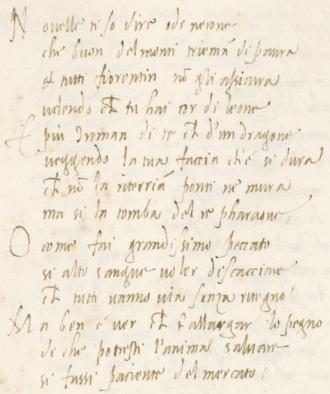 N ovelle ti so dire ode nerone
che buon del monti triemā di paura
et tutti fiorentin nō gli assiaura
udendo ch̄ tu hai cor di leone
E più trieman di te ch̄ d'un dragone
veggendo la tua faccia ch'è sì dura
ch̄ nō la riterriā ponti ne mura
ma si la tomba del re pharaone
O come fai grandissimo peccato
si alto sangue voler discacciare
ch̄ tutti vanno via senza ritegno
M a ben è ver ch̄ rallargar lo pegno
di che potresti l'anima salvare
si fussi paciente del mercato